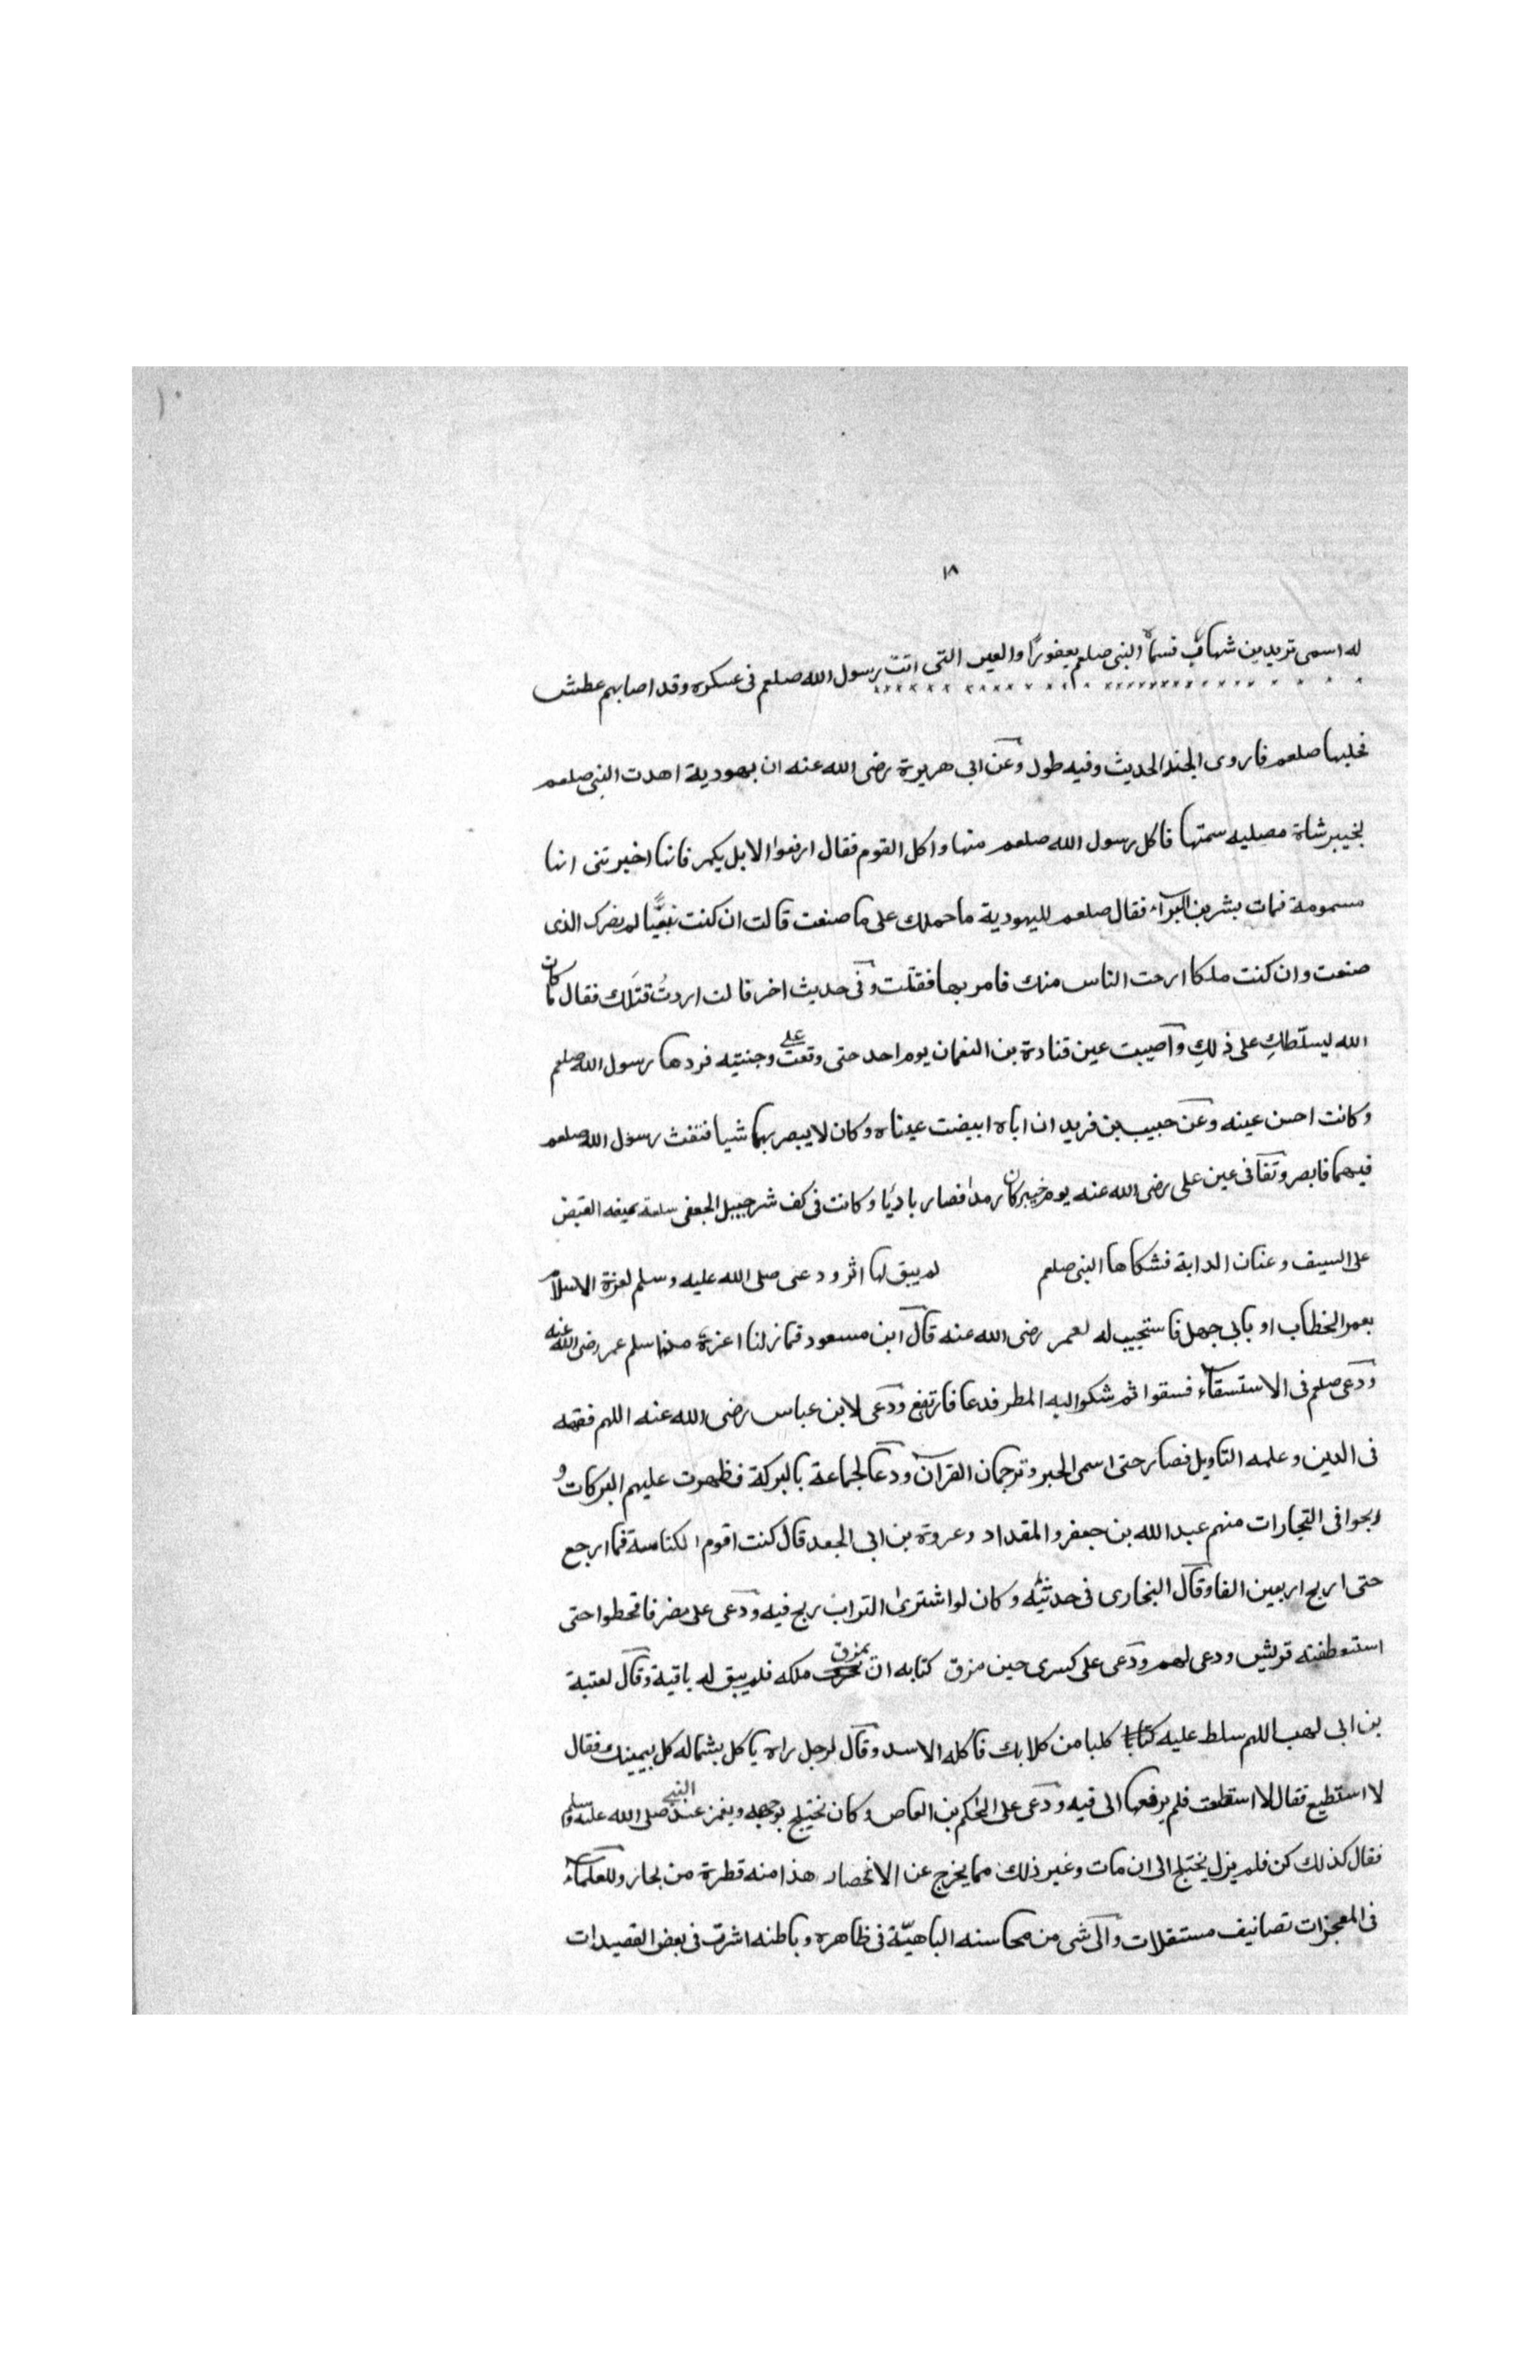 ١٠
١٨
له اسمى تزيد بن شهاب فسماه النبى صلعم يعفورًا والعين التى اتت رسول الله صلعم فى عسكره وقد اصابهم عطش
فحلبها صلعم فاروى الجند الحديث وفيه طول وعن ابى هريرة رضى الله عنه ان يهودية اهدت النبى صلعم
بخيبر شاة مصليه سمتها فاكل رسول الله صلعم منها واكل القوم فقال ارفعوا الايديكم فانها اخبرتنى انها
مسمومة فمات بشر بن البرآء فقال صلعم لليهودية ما حملك على ما صنعت قالت ان كنت نبيًّا لم يضرك الذى
صنعت وان كنت ملكا ارحت الناس منك فامر بها فقتلت وفى حديث اخر قالت اردتُ قتلَك فقال ما كان
الله ليسلّطكِ على ذلكِ واصيبت عين قتادة بن النعمان يوم احد حتى وقعت على وجنتيه فردها رسول الله صلعم
وكانت احسن عينه وعن حبيب بن فريد ان اباه ابيضت عيناه وكان لا يبصر بهما شيا فنفث رسول الله صلعم
فيهما فابصر وتفا فى عين على رضى الله عنه يوم خيبر كان رمدا فصار باديًا وكانت فى كف شرحبيل الجعفى سلعة يمنعه القبض
على السيف وعنان الدابة فشكاها النبى صلعم لم يبق لها اثر ودعى صلى الله عليه وسلم لعزة الاسلام
بعمر الخطاب او بابى جهل فاستجيب له لعمر رضى الله عنه قال ابن مسعود فما زلنا اعزة منذ اسلم عمر رضى الله عنه
ودعى صلعم فى الاستسقآء فسقوا ثم شكوا اليه المطر فدعا فارتفع ودعى لابن عباس رضى الله عنه اللهم فقهه
فى الدين وعلمه التاويل فصار حتى اسمى الحبر وترجمان القرآن ودعا لجماعة بالبركة فظهرت عليهم البركات و
ربحوا فى التجارات منهم عبد الله بن جعفر والمقداد وعروة بن ابى الجعد قال كنت اقوم الكناسة فما ارجع
حتى اربح اربعين الفا وقال البخارى فى حديثه وكان لو اشترى التراب ربح فيه ودعى على مضر فاقحطوا حتى
استعطفته قريش ودعى لهم ودعى على كسرى حين مزق كتابه ان يمزق ملكه فلم يبق له باقية وقال لعتبة
بن ابى لهب اللهم سلط عليه كلبا من كلابك فاكله الاسد وقال لرجل راه ياكل بشماله كل بيمينك فقال
لا استطيع فقال لا استطعت فلم يرفعها الى فيه ودعى على الحكم بن العاص وكان يختلج بوجهه ويغمز عند النبى صلى الله عليه وسلم
فقال كذلك كن فلم يزل يختلج الى ان مات وغير ذلك مما يخرج عن الانحصار هذا منه قطرة من بحار وللعلمآء
فى المعجزات تصانيف مستقلات والى شى من محاسنه الباهيّة فى ظاهره وباطنه اشرت فى بعض القصيدات